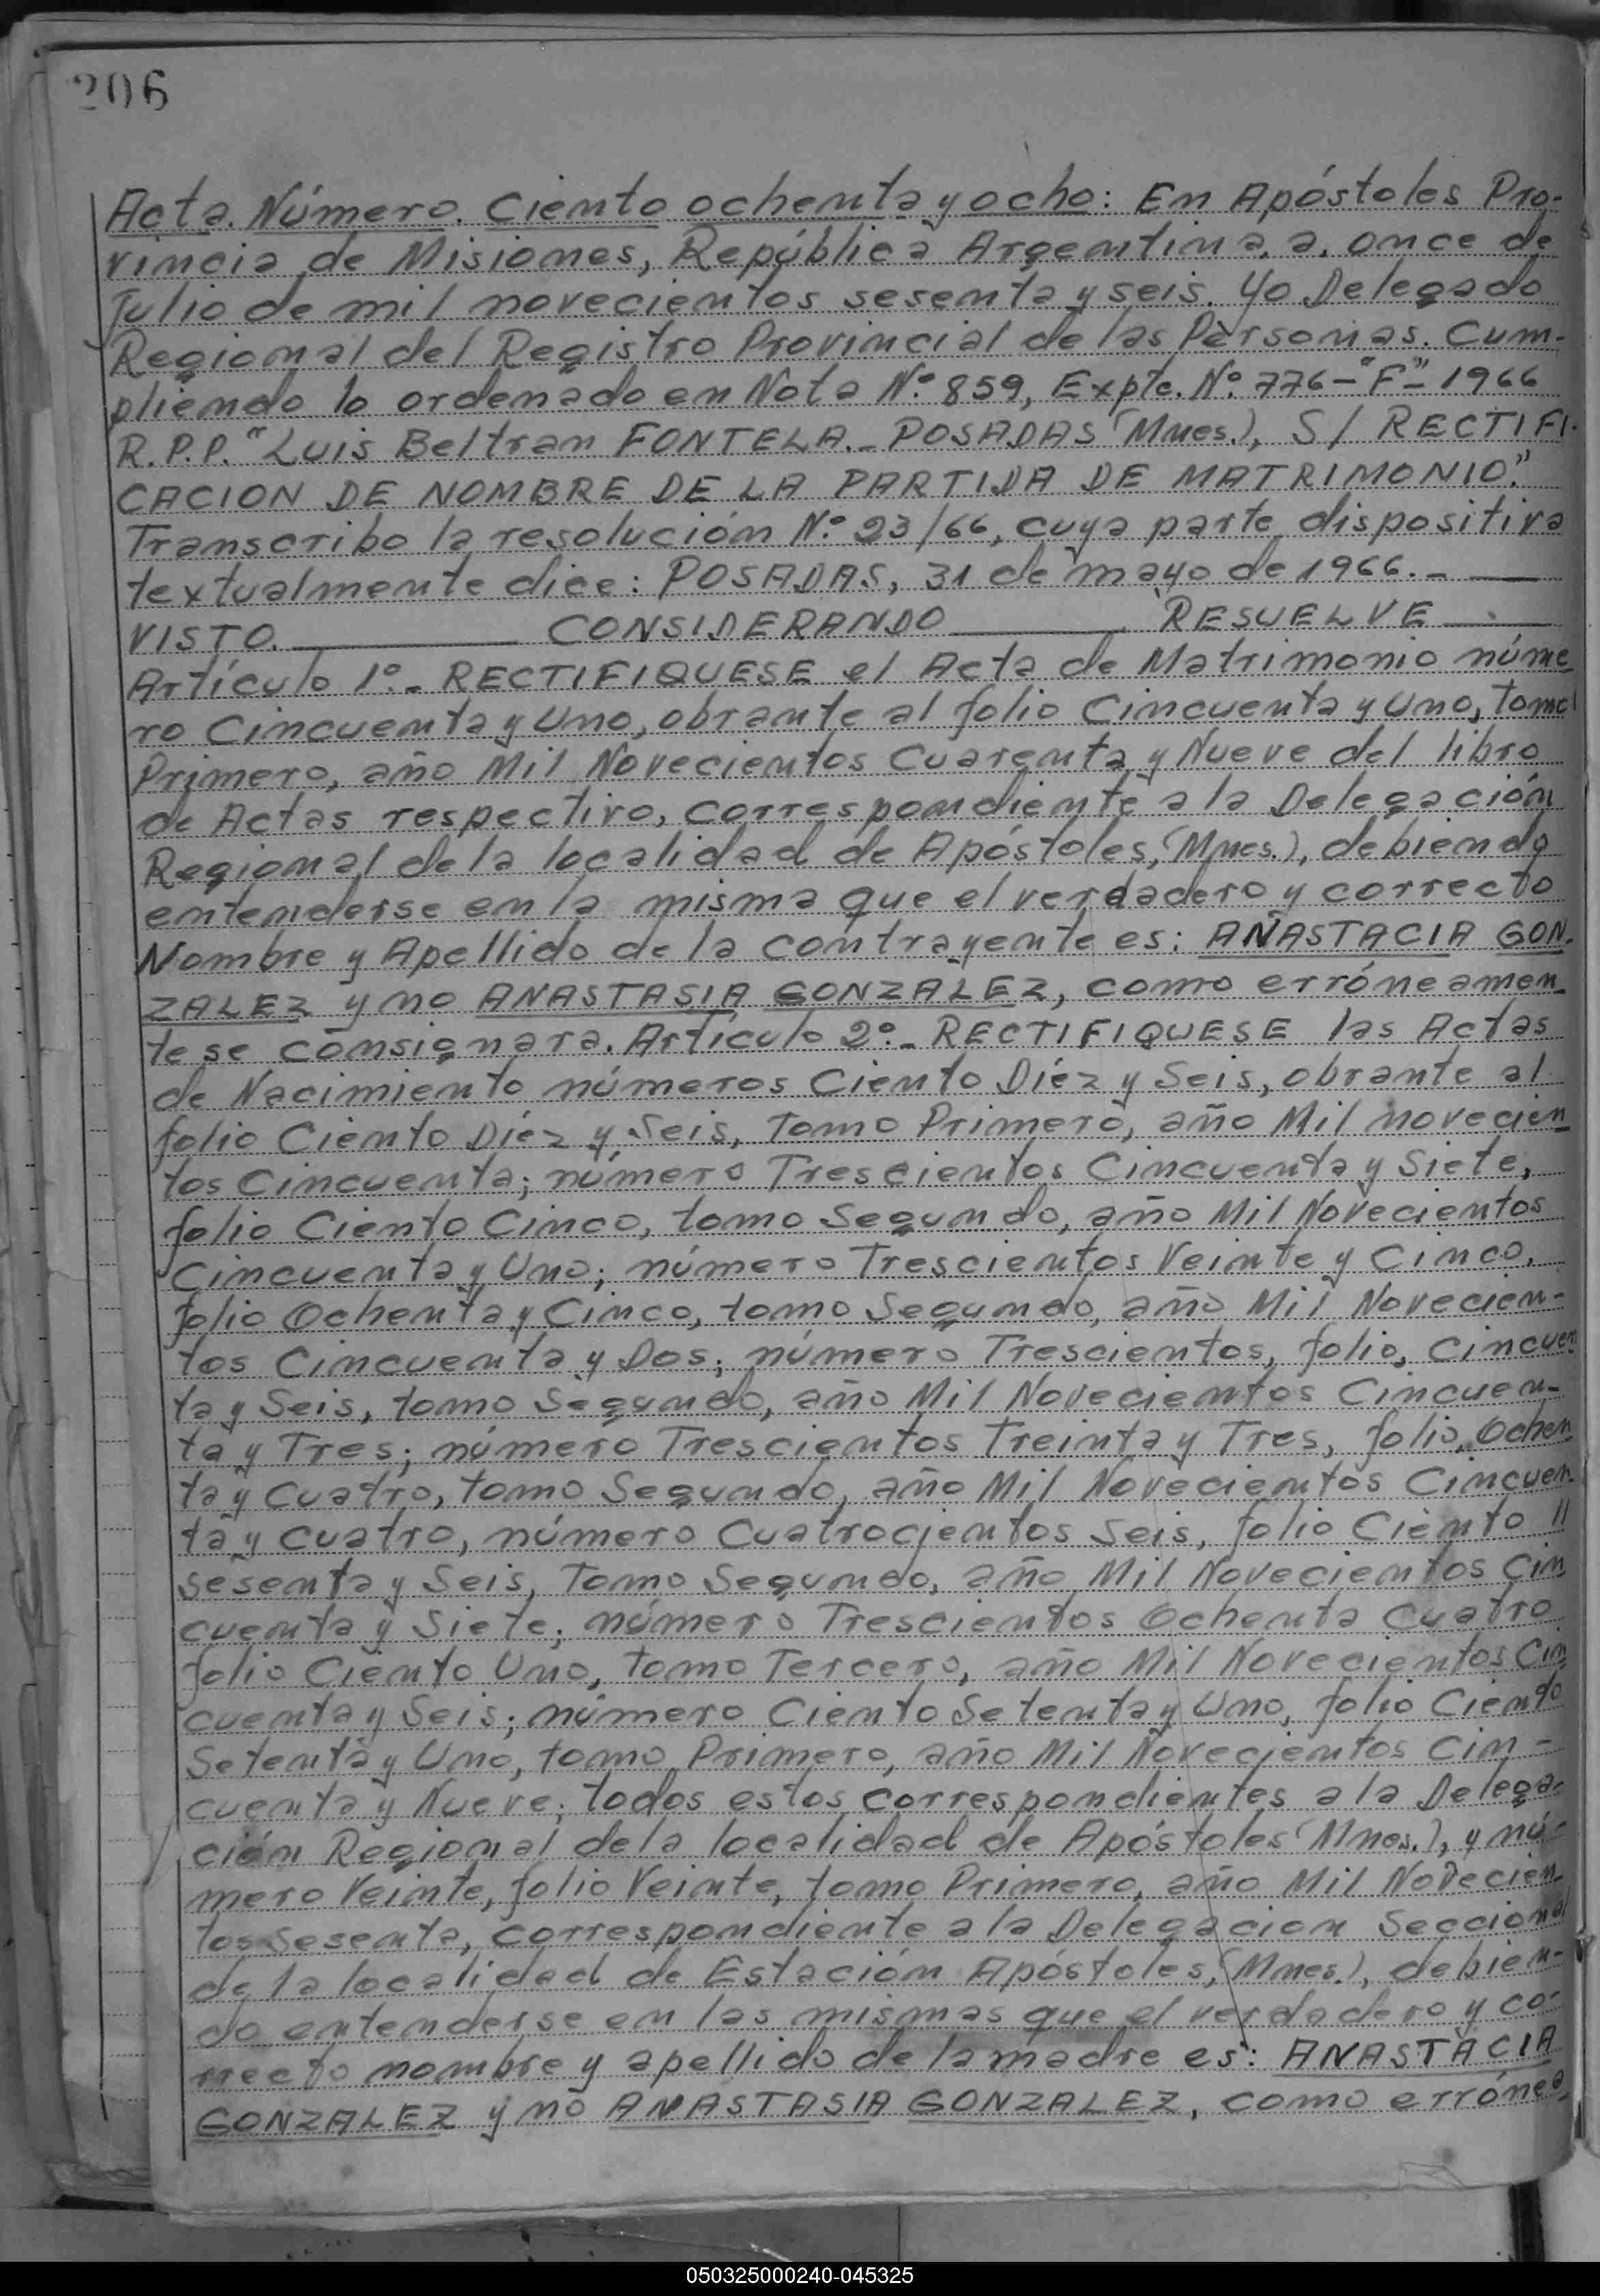 206
Acta Número Ciento ochenta y ocho: En Apóstoles Pro-
vincia de Misiones, República Argentina, a, once de
Julio de mil novecientos sesenta y seis. Yo Delegado
Regional del Registro Provincial de las Personas. Cum-
pliendo lo ordenado en Nota Nº 859, Expte. Nº 776-"F"-1966
R.P.P. "Luis Beltran FONTELA._ POSADAS (Mnes.), S/ RECTIFI-
CACION DE NOMBRE DE LA PARTIDA DE MATRIMONIO".
Transcribo la resolución Nº 23/66, cuya parte dispositiva
textualmente dice: POSADAS, 31 de mayo de 1966.-
VISTO. ______ CONSIDERANDO ______ RESUELVE ______
Artículo 1º.- RECTIFIQUESE el Acta de Matrimonio núme-
ro Cincuenta y Uno, obrante al folio Cincuenta y Uno, tomo
Primero, año Mil Novecientos Cuarenta y Nueve del libro
de Actas respectivo, correspondiente a la Delegación
Regional de la localidad de Apóstoles, (Mnes.), debiendo
entenderse en la misma que el verdadero y correcto
Nombre y Apellido de la contrayente es: AÑASTACIA GON-
ZALEZ y no ANASTASIA GONZALEZ, como erróneamen-
te se consignara. Artículo 2º.- RECTIFIQUESE las Actas
de Nacimiento números Ciento Diéz y Seis, obrante al
folio Ciento Diéz y Seis, tomo Primero, año Mil novecien-
tos Cincuenta; número Trescientos Cincuenta y Siete,
folio Ciento Cinco, tomo Segundo, año Mil Novecientos
Cincuenta y Uno; número Trescientos Veinte y Cinco,
folio Ochenta y Cinco, tomo Segundo, año Mil Novecien-
tos Cincuenta y Dos; número Trescientos, folio, Cincuen
ta y Seis, tomo Segundo, año Mil Novecientos Cincuen-
ta y Tres; número Trescientos Treinta y Tres, folio, Ochen
ta y Cuatro, tomo Segundo, año Mil Novecientos Cincuen-
ta y Cuatro, número Cuatrocientos Seis, folio Ciento //
sesenta y Seis, Tomo Segundo, año Mil Novecientos Cin
cuenta y Siete; número Trescientos Ochenta Cuatro
folio Ciento Uno, tomo Tercero, año Mil Novecientos Cin=
cuenta y Seis; número Ciento Setenta y Uno, folio Ciento
Setenta y Uno, tomo Primero, año Mil Novecientos Cin-
cuenta y Nueve; todos estos correspondientes a la Delega-
ción Regional de la localidad de Apóstoles (Mnes.), y nú-
mero Veinte, folio Veinte, tomo Primero, año Mil Novecien-
tos Sesenta, correspondiente a la Delegacion Seccional
de la localidad de Estación Apóstoles, (Mnes.), debien-
do entenderse en las mismas que el verdadero y co-
rrecto nombre y apellido de la madre es: ANASTACIA
GONZALEZ y no ANASTASIA GONZALEZ, como errónea-
050325000240-045325